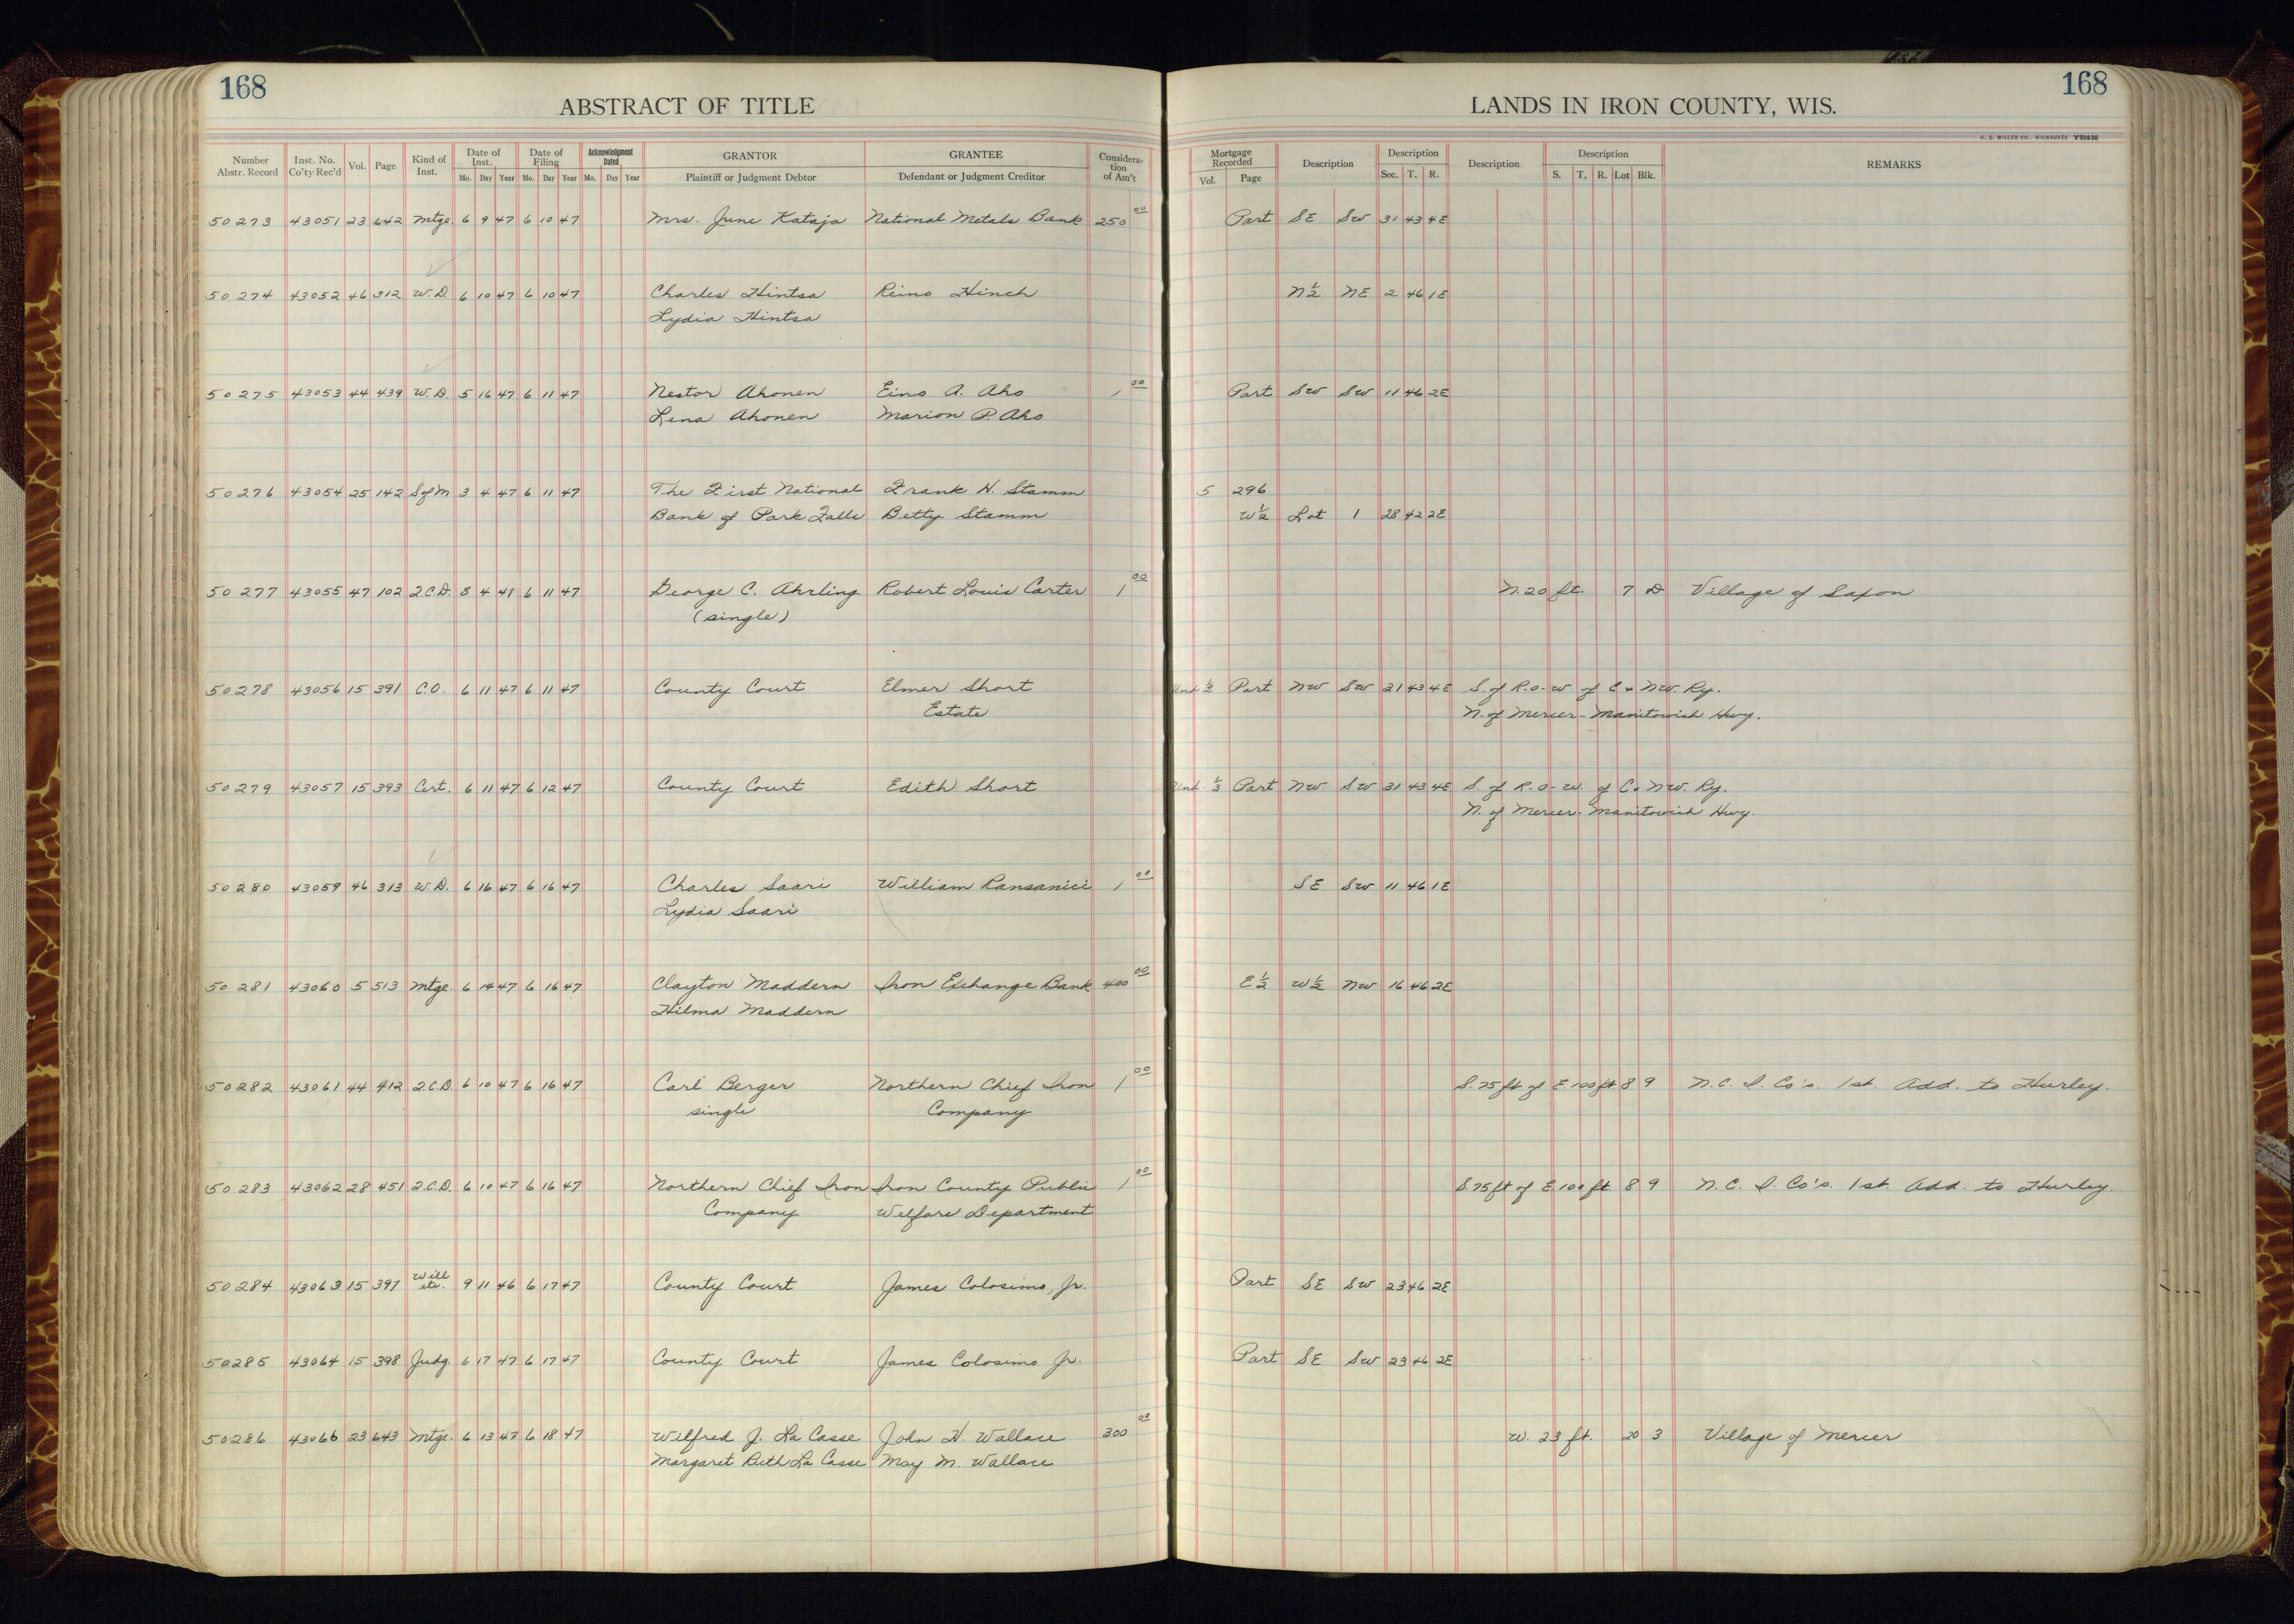 168
168
ABSTRACT OF TITLE
LANDS IN IRON COUNTY, WIS.
H. C. MILLER CO., MILWAUKEE Y50930
Number Abstr. Record Inst. No. Co'ty Rec'd Vol. Page Kind of Inst. Date of Inst. Mo. Day Year Date of Filing Mo. Day Year Acknowledgment Dated Mo. Day Year GRANTOR Plaintiff or Judgment Debtor GRANTEE Defendant or Judgment Creditor Considera-tion of Am't Mortgage Recorded Vol. Page Description Description Sec. T. R. Description Description S. T. R. Lot Blk. REMARKS
50273 43051 23 642 Mtge. 6 9 47 6 10 47 Mrs. June Kataja National Metals Bank 250 00 Part SE SW 31 43 4E
50274 43052 46 312 W.D. 6 10 47 6 10 47 Charles Hintsa Reino Hinch N½ NE 2 46 1E
Lydia Hintsa
50275 43053 44 439 W.D. 5 16 47 6 11 47 Nestor Ahonen Eino A. Aho 1 00 Part SW SW 11 46 2E
Lena Ahonen Marion P. Aho
50276 43054 25 142 S of M 3 4 47 6 11 47 The First National Frank H. Stamm 5 296
Bank of Park Falls Betty Stamm W½ Lot 1 28 42 2E
50277 43055 47 102 Q.C.D. 8 4 41 6 11 47 George C. Ahrling Robert Louis Carter 1 00 N. 20 ft. 7 D Village of Saxon
(single)
50278 43056 15 391 C.O. 6 11 47 6 11 47 County Court Elmer Short Und ½ Part NW SW 31 43 4E S. of R.-o-w of C & NW. Ry.
Estate N. of Mercer-Manitowish Hwy.
50279 43057 15 393 Cert. 6 11 47 6 12 47 County Court Edith Short Und. ⅓ Part NW SW 31 43 4E S. of R.-o-W. of C & NW. Ry.
N. of Mercer-Manitowish Hwy.
50280 43059 46 313 W.D. 6 16 47 6 16 47 Charles Saari William Ransanici 1 00 SE SW 11 46 1E
Lydia Saari
50281 43060 5 513 Mtge. 6 14 47 6 16 47 Clayton Maddern Iron Exchange Bank 400 00 E½ W½ NW 16 46 2E
Hilma Maddern
50282 43061 44 412 Q.C.D. 6 10 47 6 16 47 Carl Berger Northern Chief Iron 1 00 S. 75 ft of E 100 ft 8 9 N.C. I. Co's. 1st. Add. to Hurley.
single Company
50283 43062 28 451 Q.C.D. 6 10 47 6 16 47 Northern Chief Iron Iron County Public 1 00 S. 75 ft of E. 100 ft. 8 9 N.C. I. Co's. 1st. Add. to Hurley.
Company Welfare Department
50284 43063 15 397 Will etc. 9 11 46 6 17 47 County Court James Colosimo, Jr. Part SE SW 23 46 2E
50285 43064 15 398 Judg. 6 17 47 6 17 47 County Court James Colosimo Jr. Part SE SW 23 46 2E
50286 43066 23 643 Mtge. 6 13 47 6 18 47 Wilfred J. La Casse John H. Wallace 300 00 W. 23 ft. 20 3 Village of Mercer
Margaret Ruth La Casse May M. Wallace